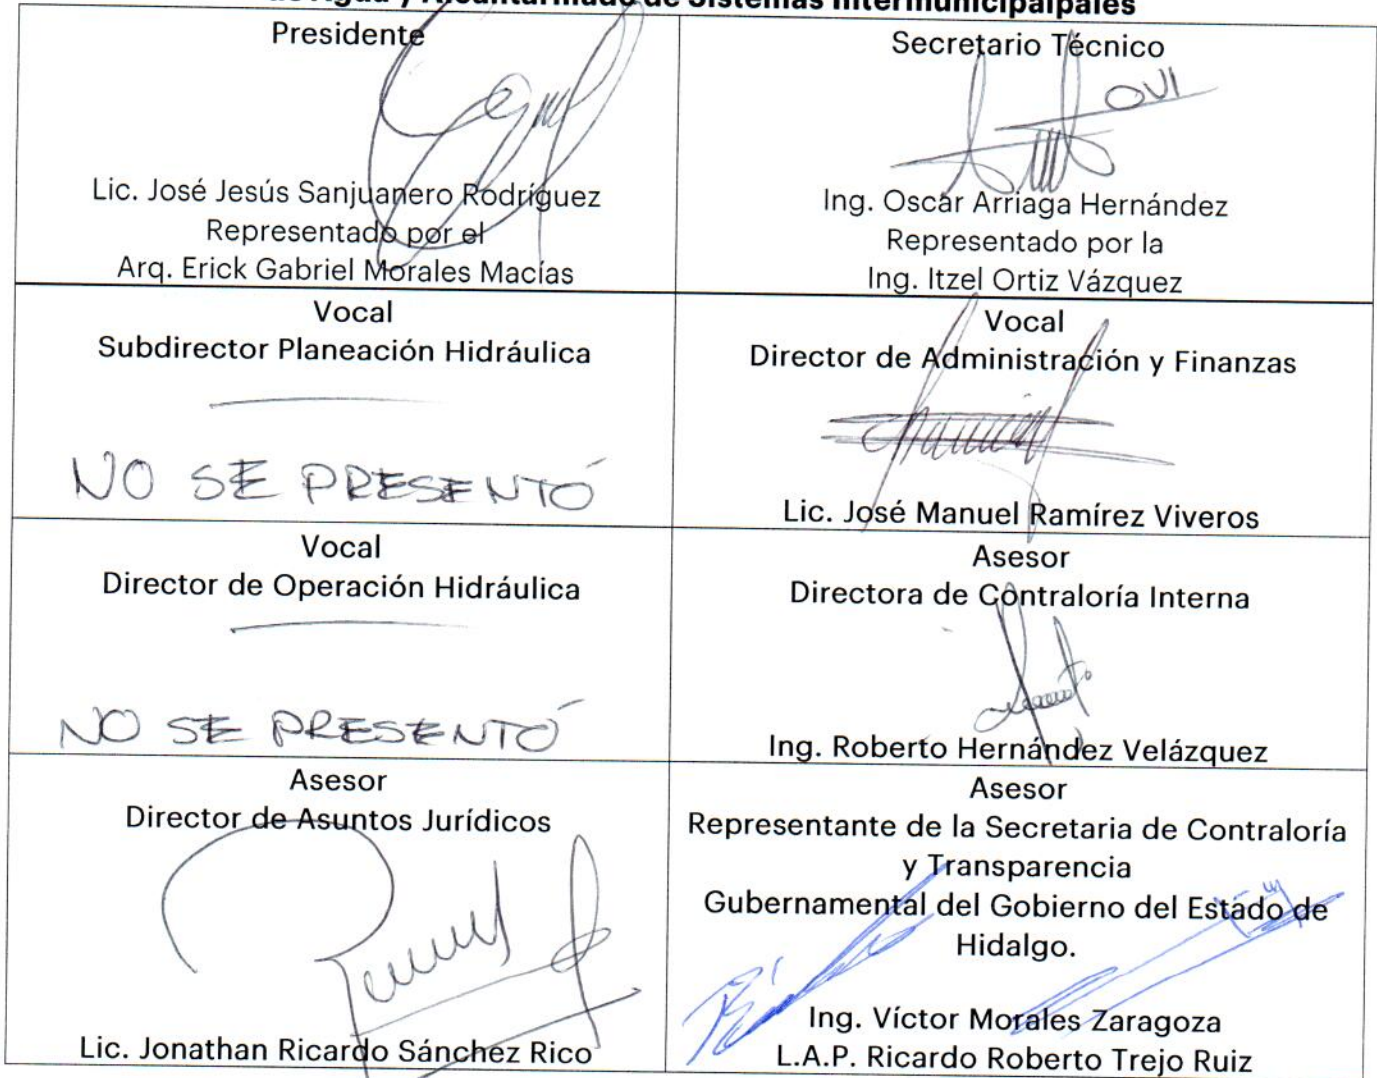 de Agua y Alcantarillado de Sistemas Intermunicipalpales
Presidente
Lic. José Jesús Sanjuanero Rodríguez
Representado por el
Arq. Erick Gabriel Morales Macías
Secretario Técnico
OVI
Ing. Oscar Arriaga Hernández
Representado por la
Ing. Itzel Ortiz Vázquez
Vocal
Subdirector Planeación Hidráulica
NO SE PRESENTÓ
Vocal
Director de Administración y Finanzas
Lic. José Manuel Ramírez Viveros
Vocal
Director de Operación Hidráulica
NO SE PRESENTÓ
Asesor
Directora de Contraloría Interna
Ing. Roberto Hernández Velázquez
Asesor
Director de Asuntos Jurídicos
Lic. Jonathan Ricardo Sánchez Rico
Asesor
Representante de la Secretaria de Contraloría
y Transparencia
Gubernamental del Gobierno del Estado de
Hidalgo.
Ing. Víctor Morales Zaragoza
L.A.P. Ricardo Roberto Trejo Ruiz